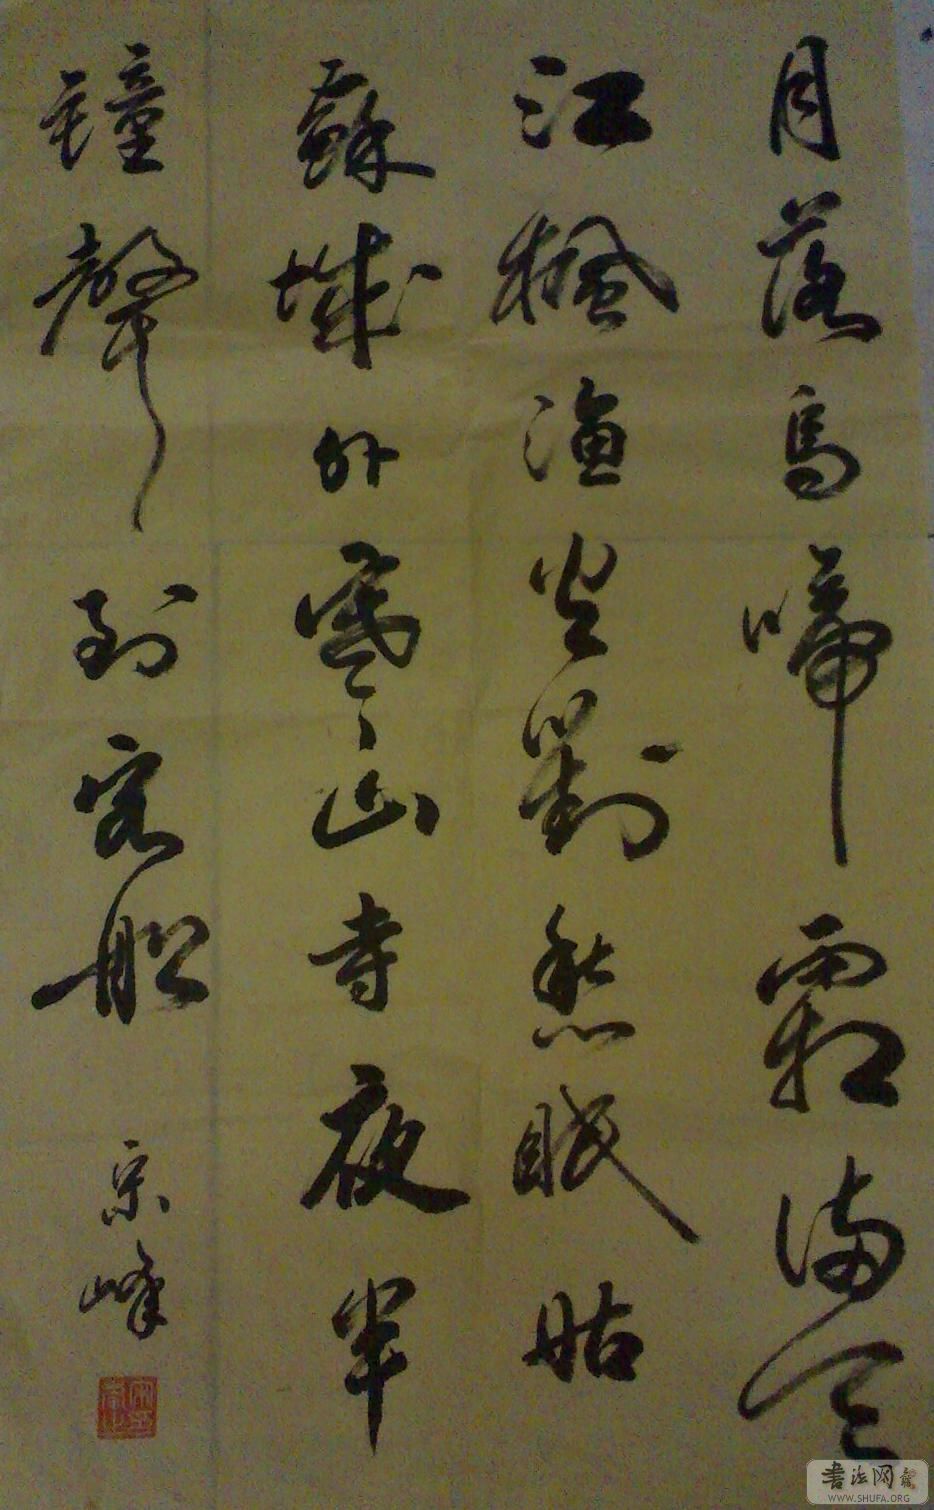 月落烏啼霜滿天
江楓漁火對愁眠姑
蘇城外寒山寺夜半
鐘聲到客船
宗峰
書法网
WWW.SHUFA.ORG